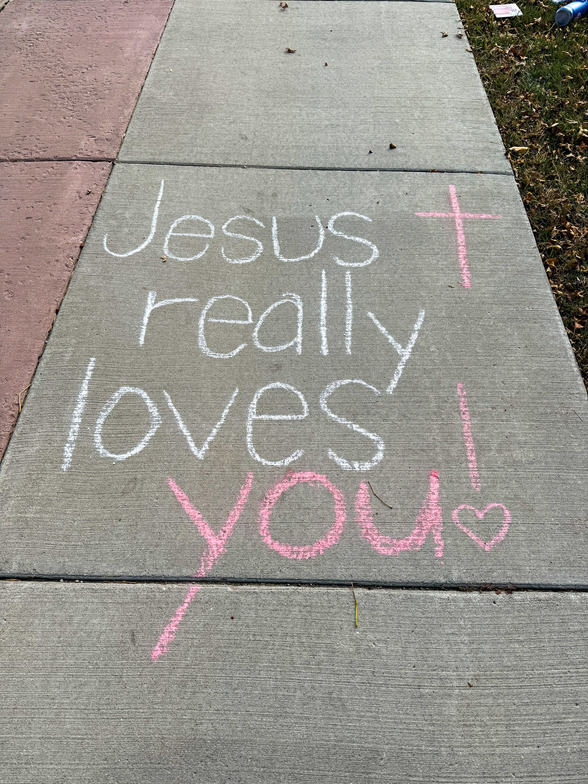 Jesus
really
loves
you!